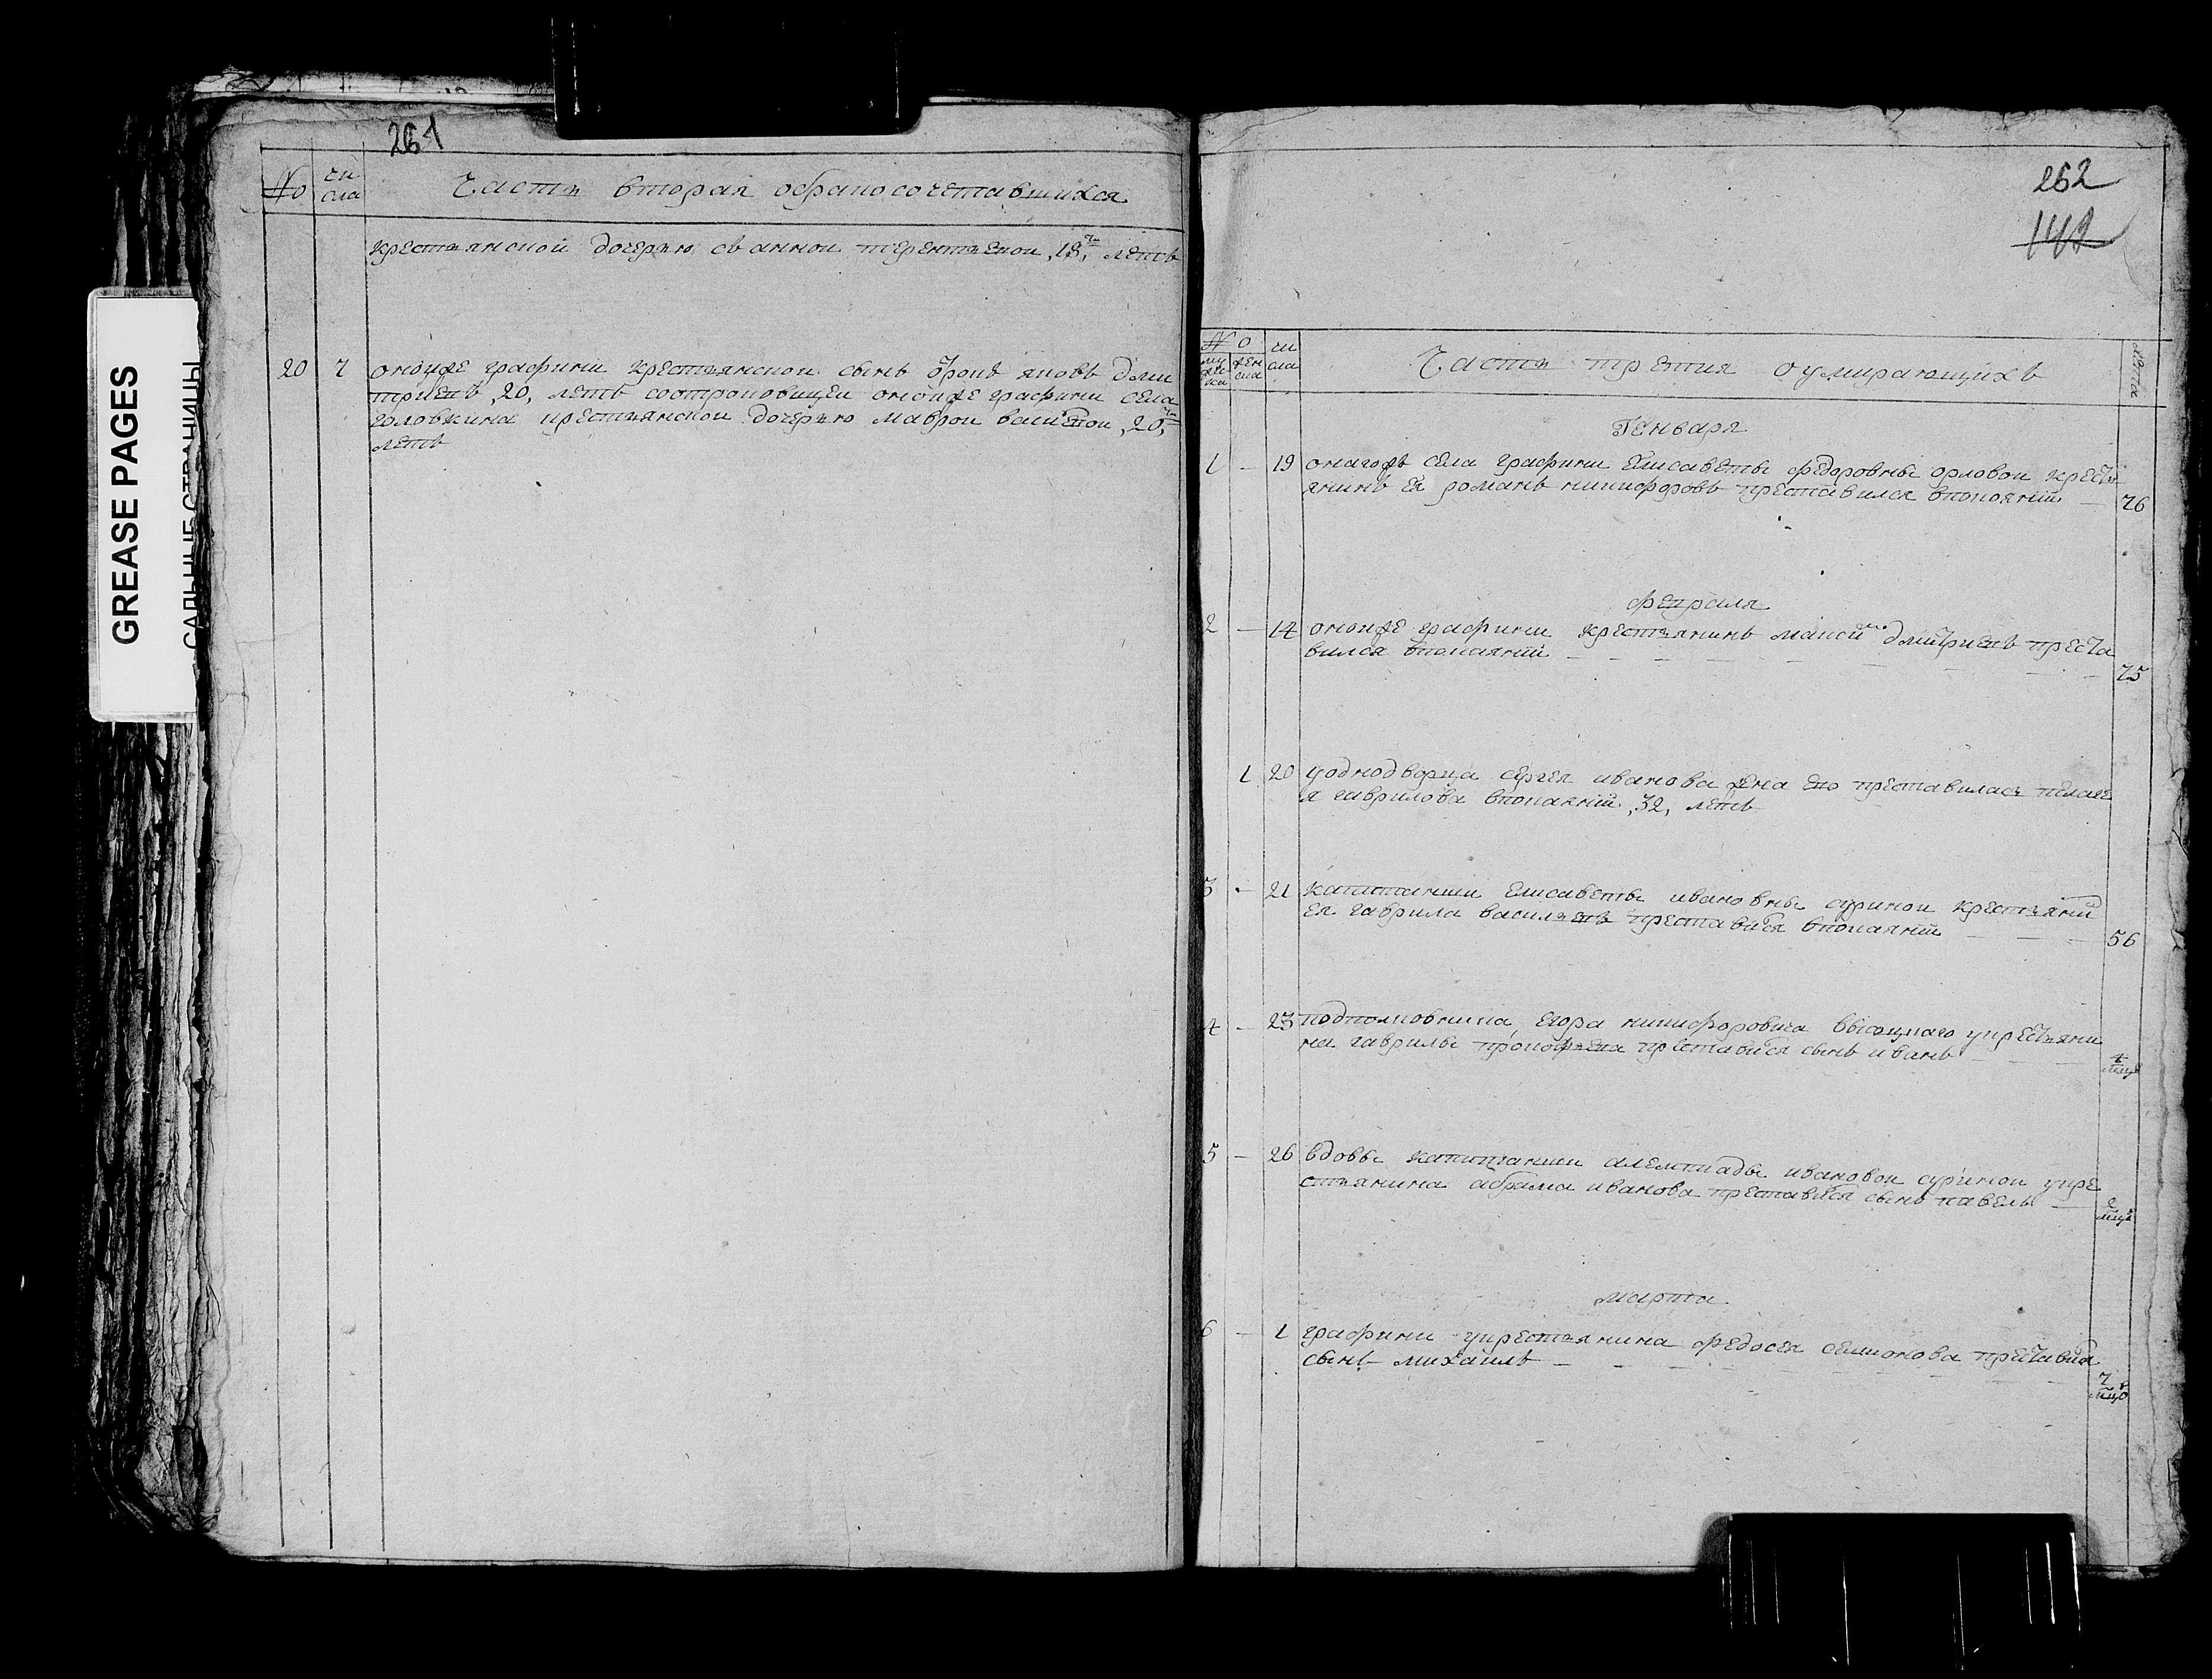 GREASE PAGES
САЛЬНЫЕ СТРАНИЦЫ
261
№ чи
сла
Часть вторая обраносочетавшихся
крестьянской дочерью сь анной терентьевой ,18,ти летъ
20 7 оной же графини крестьянской сынъ яковъ дми
триевъ ,20, летъ графини села
головкина крестьянской дочерью маврой ,20,ти
летъ
262
142
№ чи
сла
Часть третия оумирающихъ
лета
Генваря
1 – 19 онагожъ села графини Елисаветы федоровны орловой кресть
янинъ ея романъ никифоровъ преставился впокаянїи — 76
февраля
2 – 14 оной же графини крестьянинъ дмитриевъ преста
вился впокаянїи – – – – – – 75
1 20 уоднодворца сергея иванова жена ево преставилась пелаге
я гаврилова впокаянїи ,32, летъ
3 – 21 капитанши Елисаветы ивановны суриной крестьяни
ея гаврила васильевъ преставися впокаянїи – – – 56
4 – 23 подполковника Егора никифоровича высоцкаго укрестьяни
на гаврилы прокофьева преставися сынъ иванъ – – – 4
мцъ
5 – 26 вдовы капитанши ивановой суриной укре
стьянина абрама иванова преставися сынъ павелъ — 2
мцъ
марта
6 – 1 графини укрестьянина федосея семионова преставися
сынъ михаилъ – – – – – – – 7
мцъ